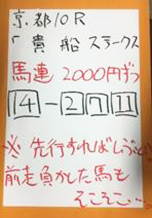 京都10R
「貴船ステークス
馬連 2000円ずつ
14-2 7 11
※ 先行すればしぶとい
前走負かした馬も
そこそこ…。